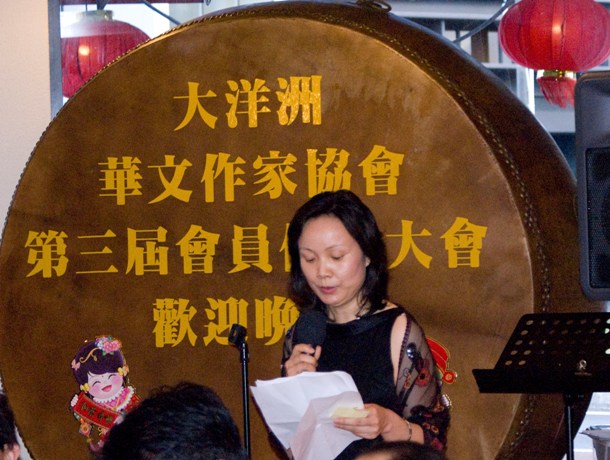 大洋洲
華文作家協會
第三屆會員 大會
歡迎晚